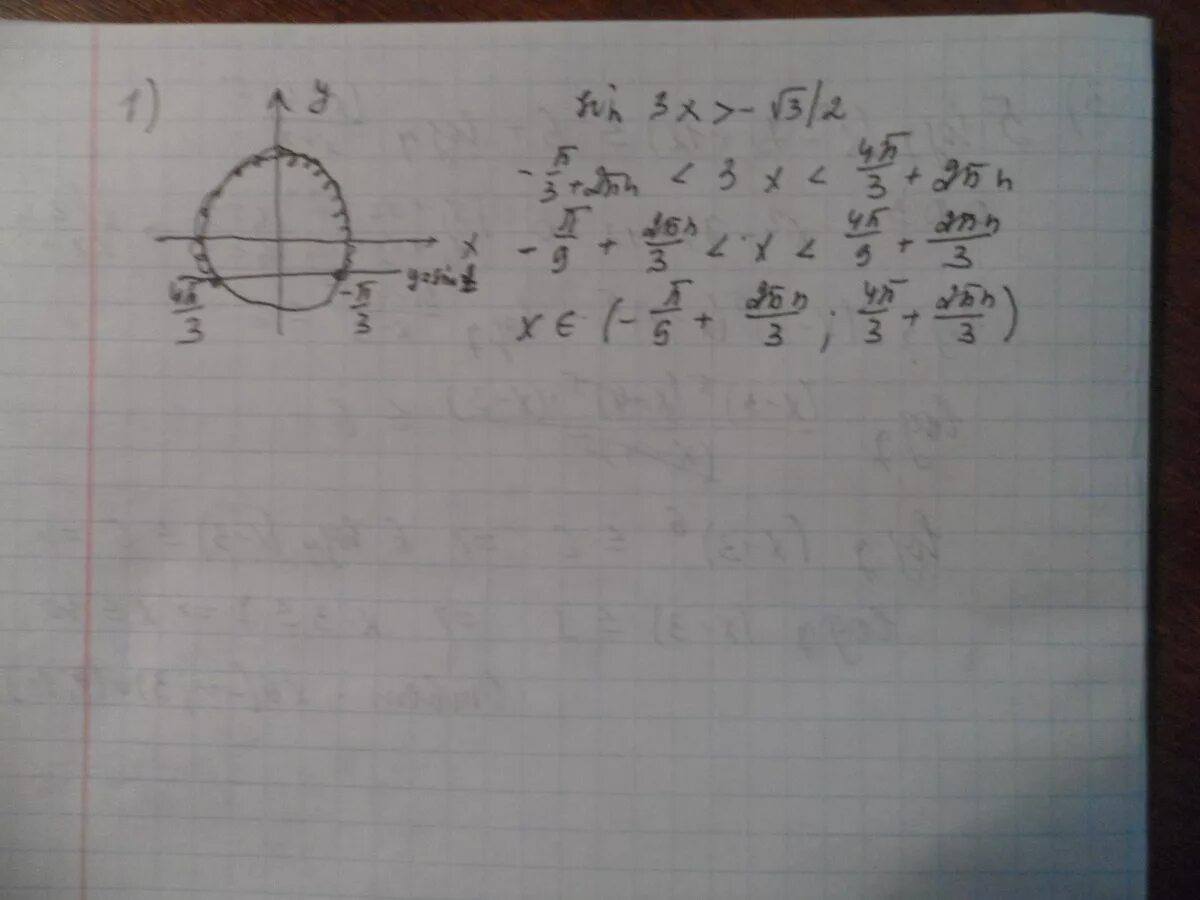 1)
y
x
4π/3
-π/3
y=sin
sin 3x > -√3/2
-π/3 + 2πn < 3x < 4π/3 + 2πn
-π/9 + 2πn/3 < x < 4π/9 + 2πn/3
x ∈ (-π/9 + 2πn/3 ; 4π/3 + 2πn/3)